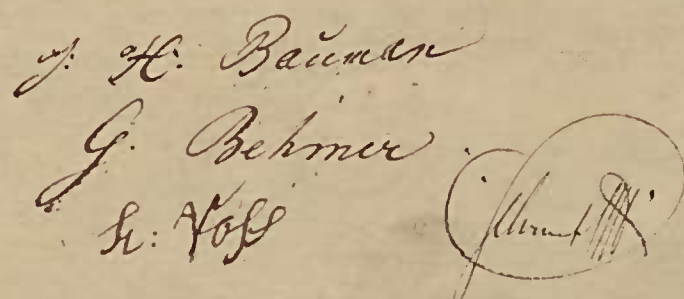 J. H. Bauman
G. Behmer
H: Voss